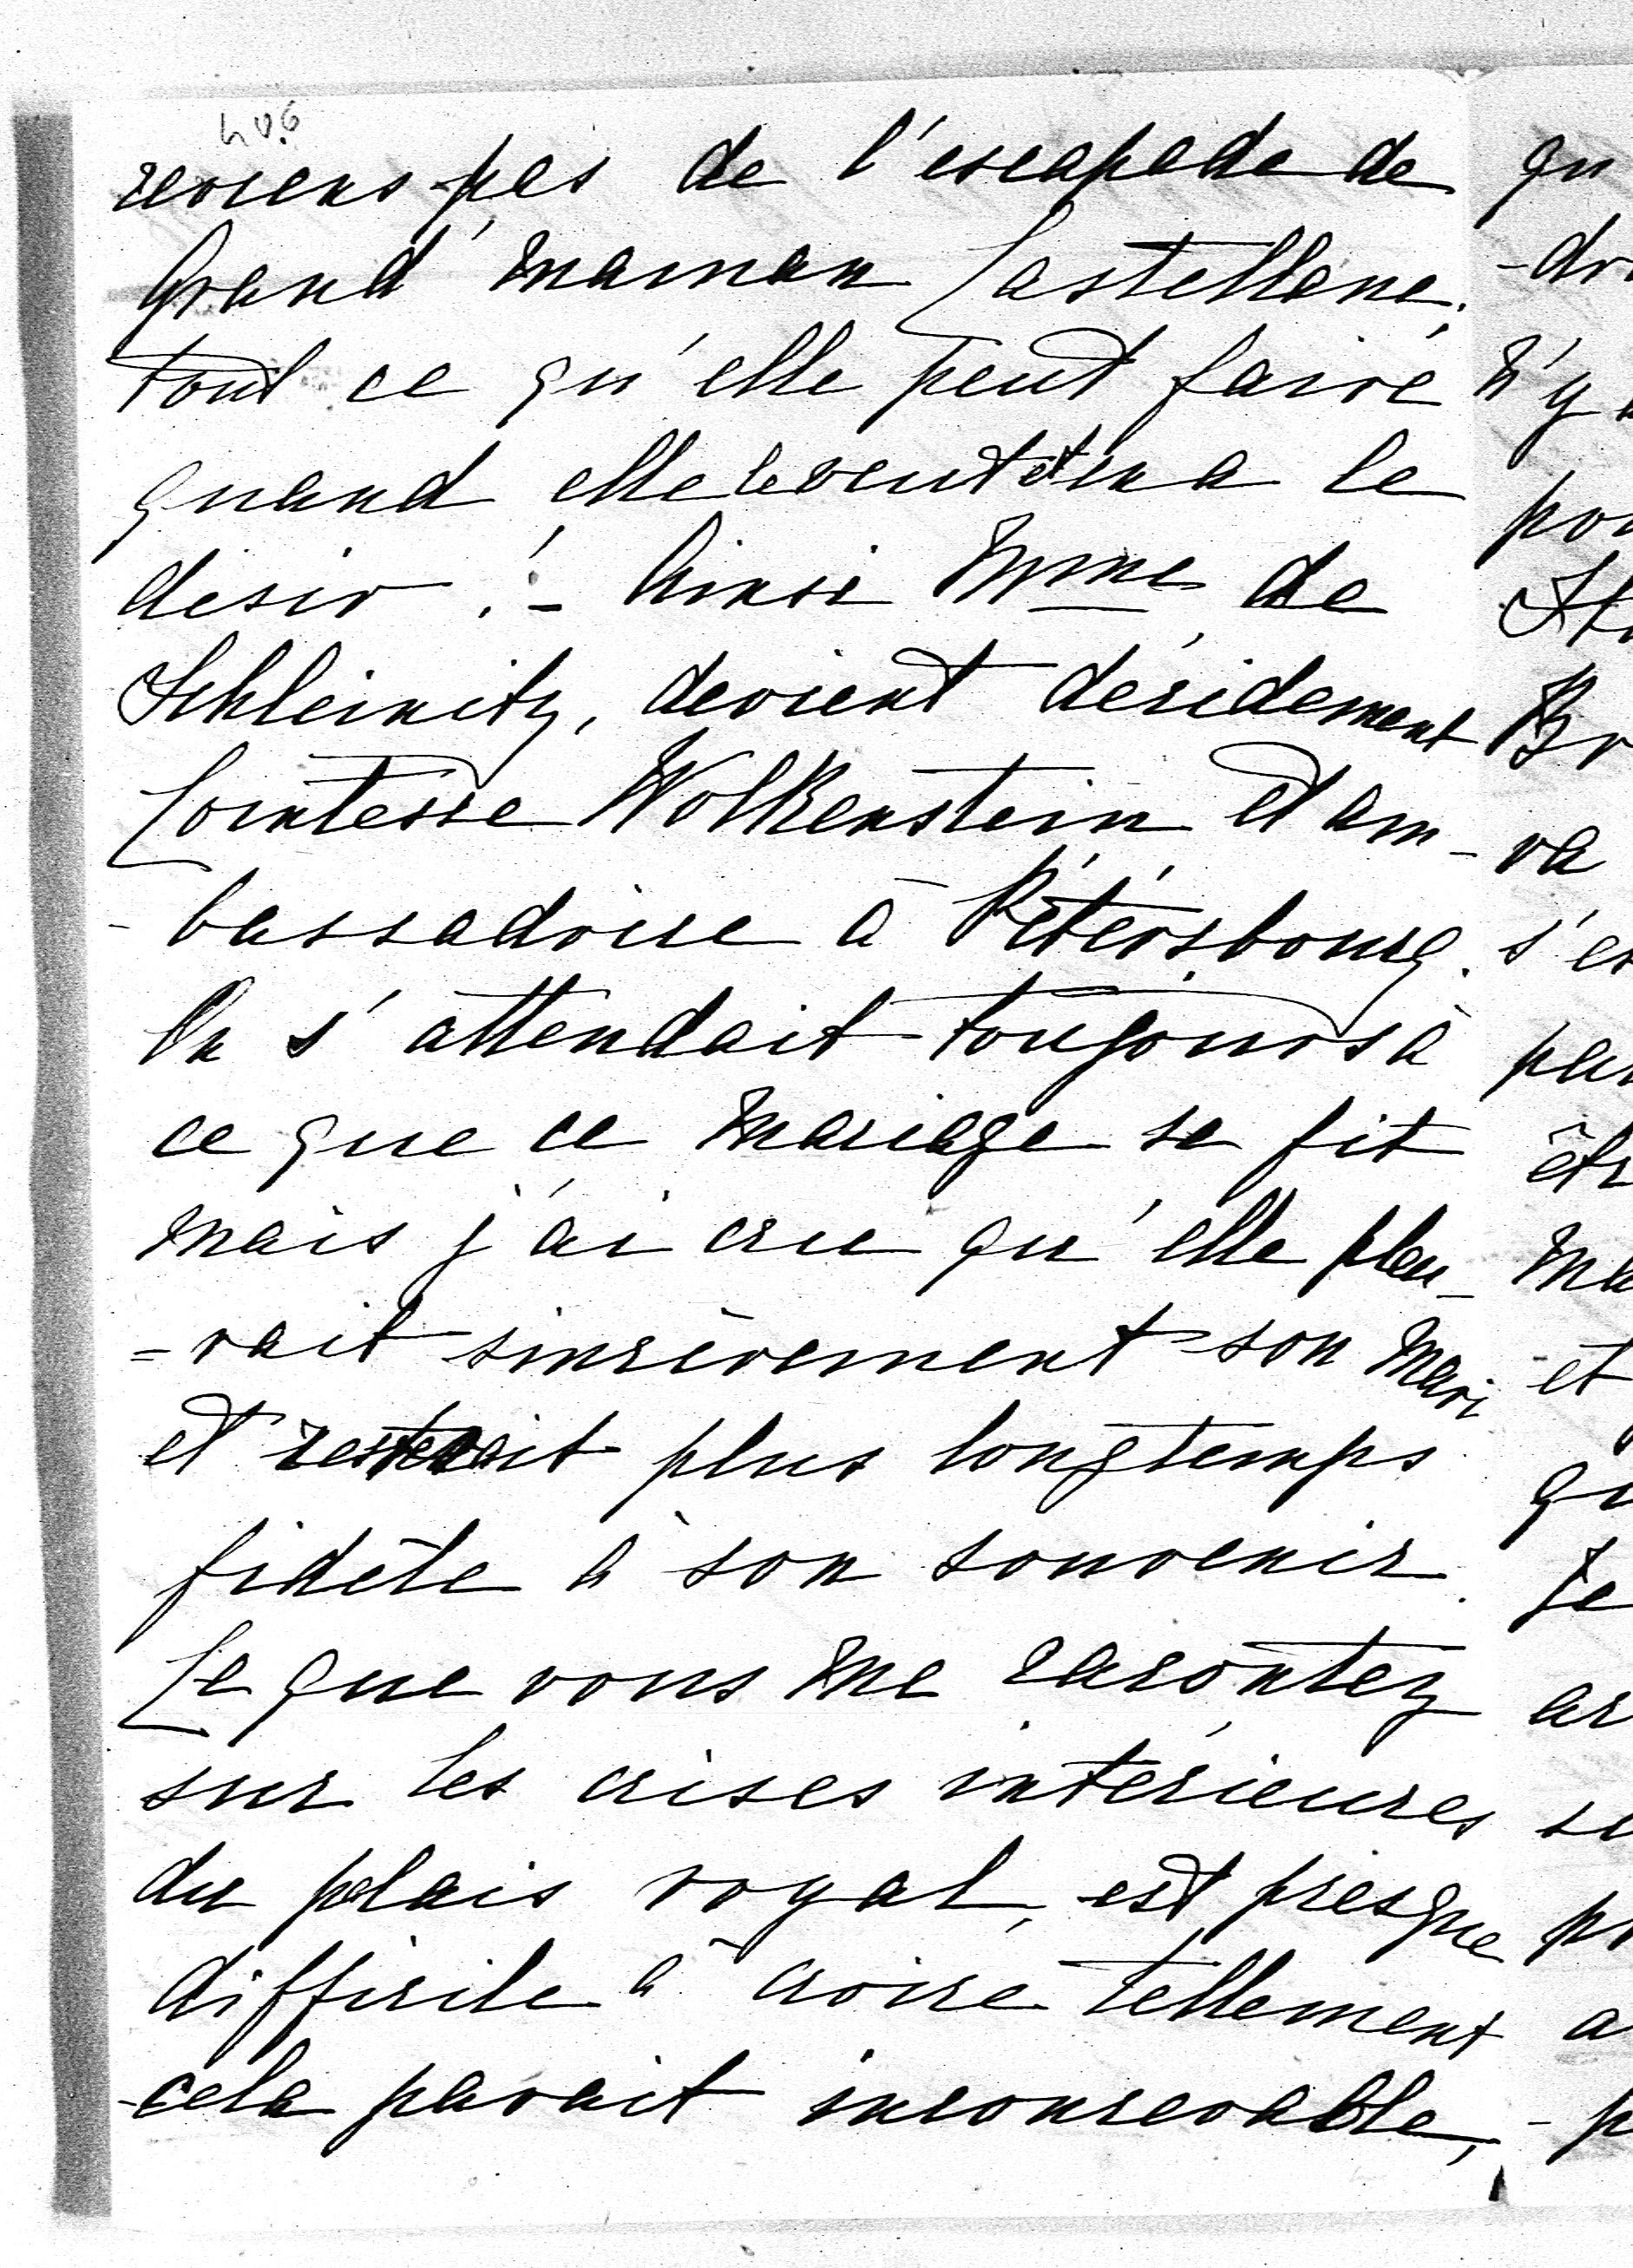 406
reviens pas de l'escapade de
Grand' maman Castellane.
tout ce qu'elle peut faire
quand elle le veut et en a le
désir ! - Ainsi Mme de
Schleinitz, devient décidement
Comtesse Wolkenstein et am-
-bassadrice à Pétersbourg.
On s'attendait toujours à
ce que ce mariage se fit
mais j'ai cru qu'elle pleu-
=rait sincèrement son mari
et resterait plus longtemps
fidèle à son souvenir.
Ce que vous me racontez
sur les crises intérieures
du palais royal, est presque
difficile à croire tellement
cela parait inconcevable,
qu
-dr
n'y
po
Br
va
s'es
pa
êtr
ma
et
qu
Je
ar
su
pr
a
-p